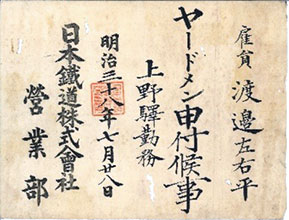 雇員 渡邉左右平
ヤードメン申付候事
上野驛勤務
明治三十八年七月廿八日
日本鐵道株式會社
營業部